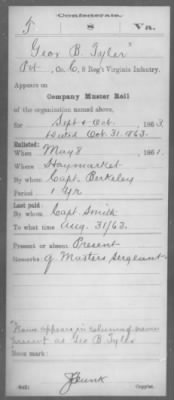 Confederate.
T 8 Va.
Geo. B Tyler
Pvt., Co. C, 8 Reg't Virginia Infantry.
Appears on
Company Muster Roll
of the organization named above,
for Sept & Oct. 1863.
Dated Oct. 31, 1863.
Enlisted:
When May 8, 1861.
Where Haymarket
By whom Capt. Berkeley
Period 1 yr
Last paid:
By whom Capt. Smith
To what time Aug. 31/63.
Present or absent Present
Remarks: Sergeant
Name appears in column names
present as Geo B Tyler
Book mark:
Copyist.